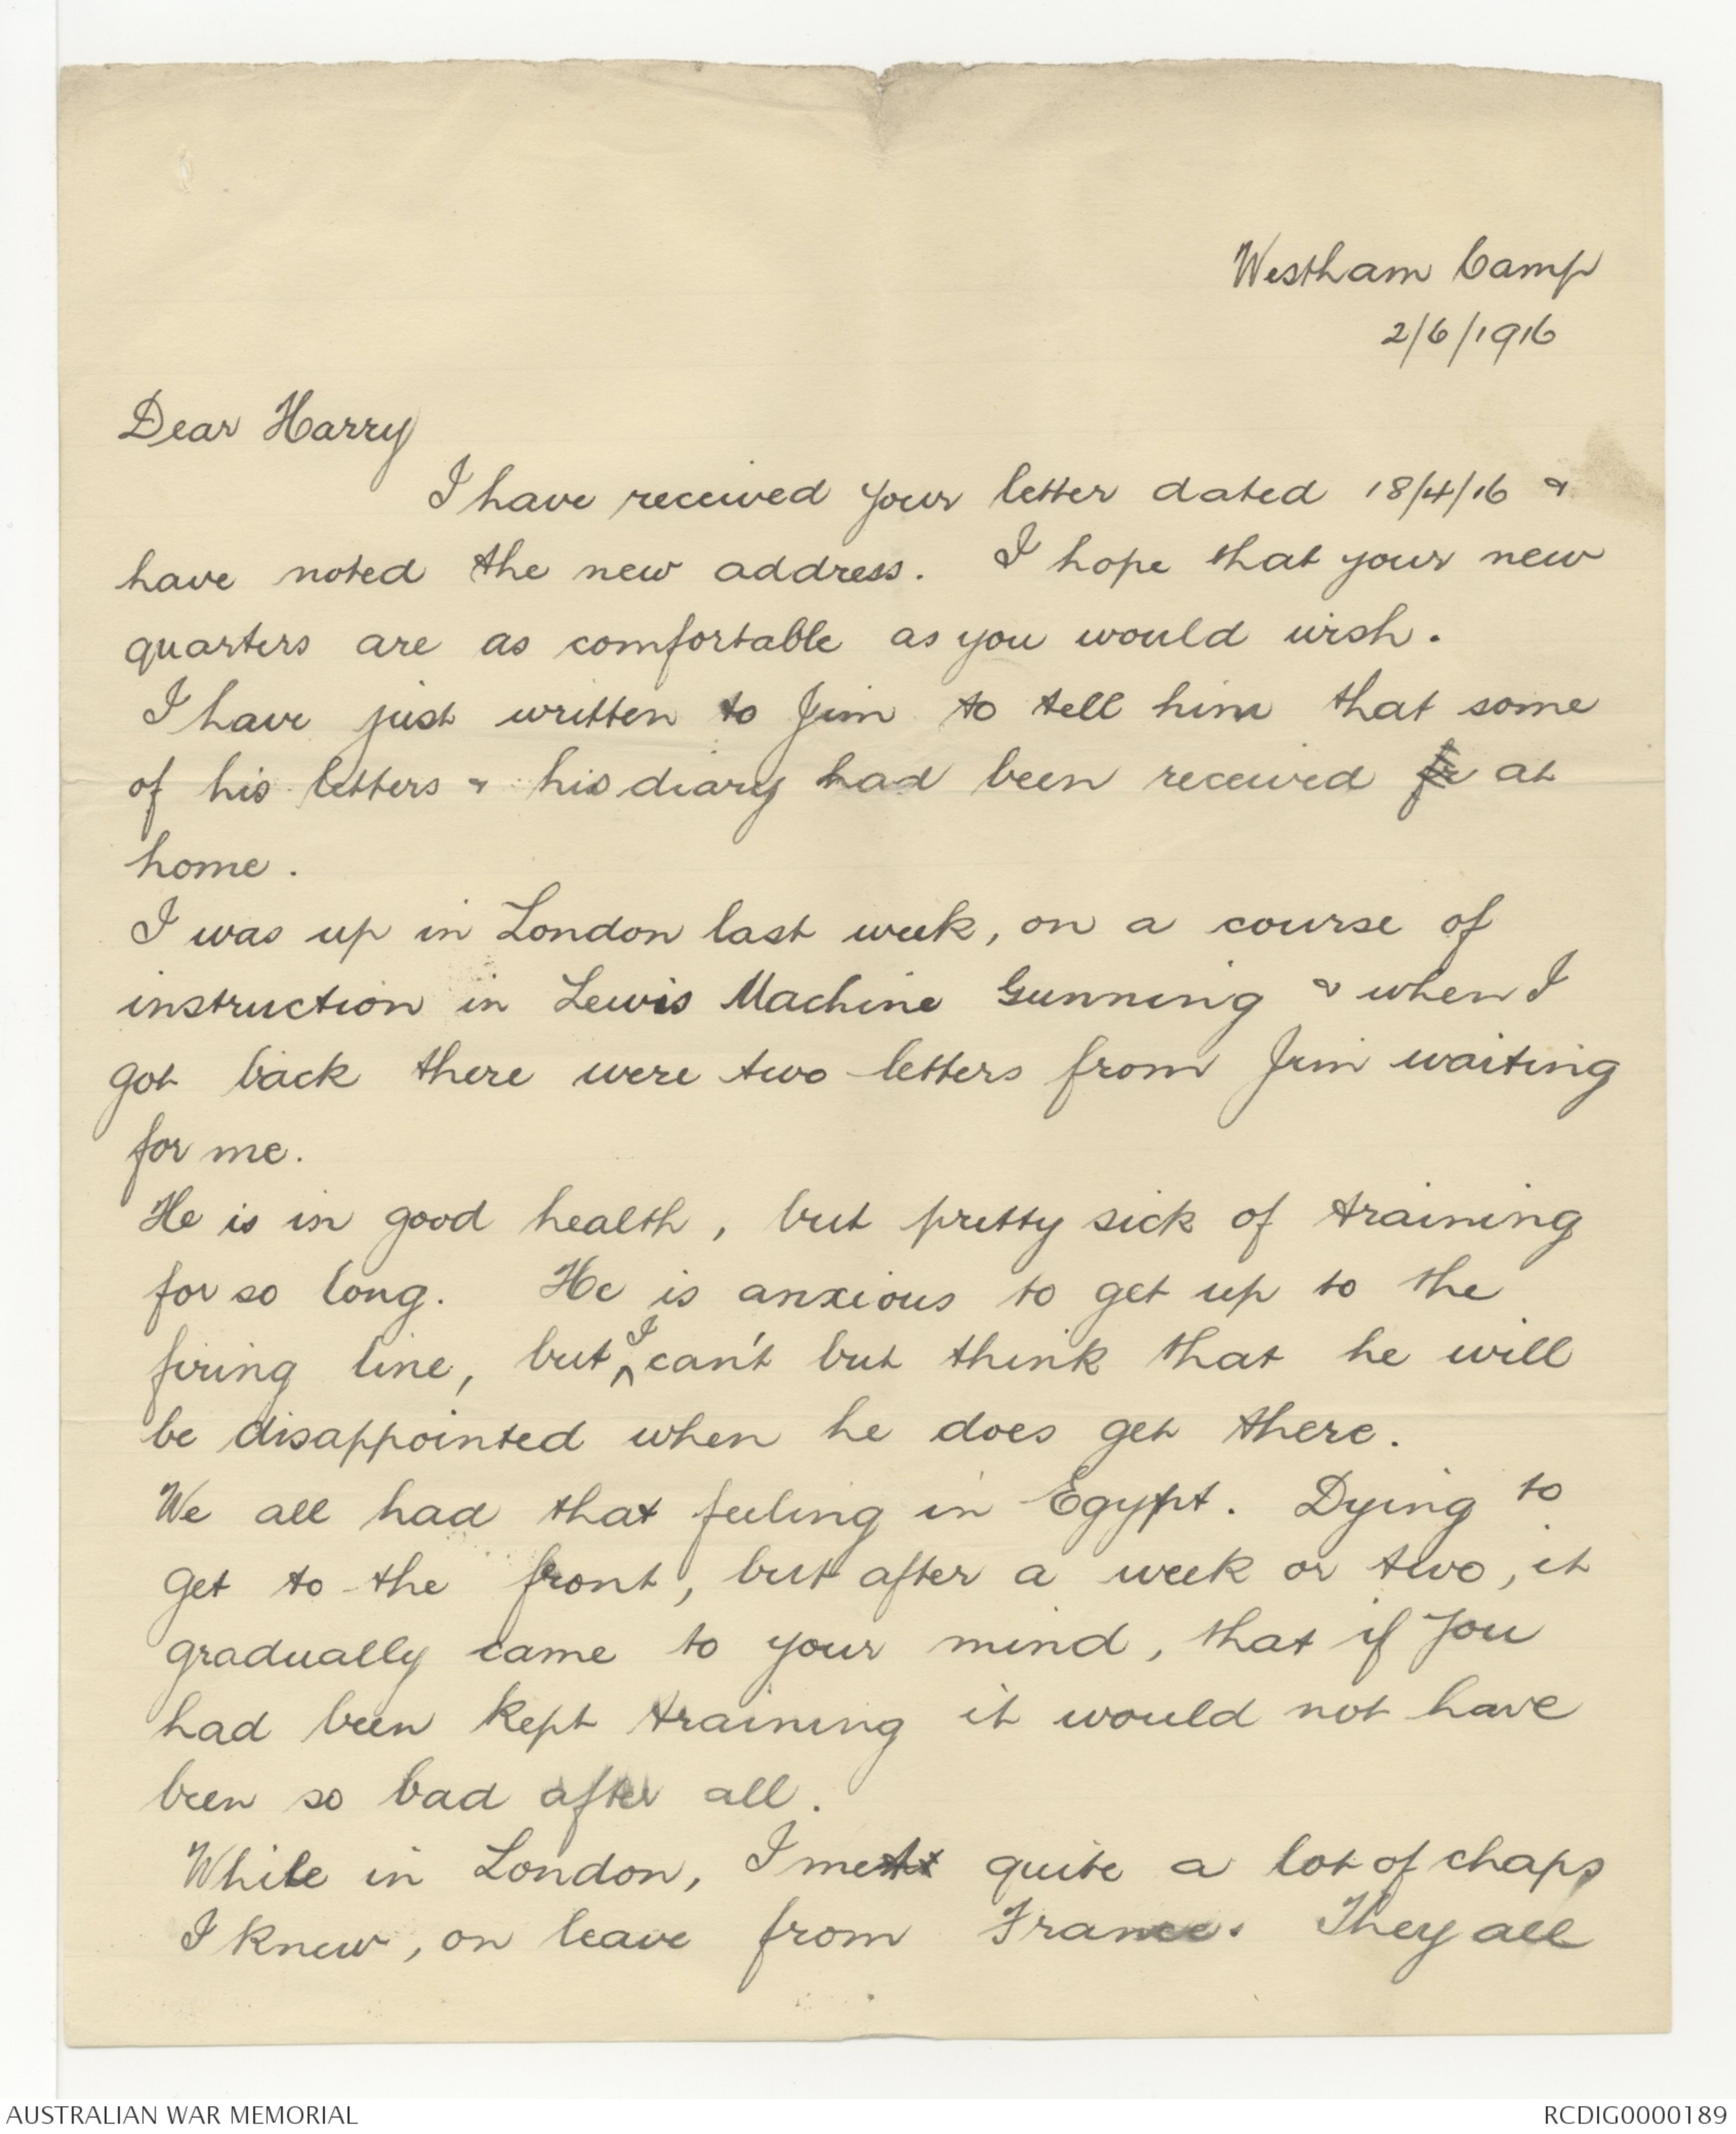 Westham Camp
2/6/1916
Dear Harry
I have received your letter dated 18/4/16 &
have noted the new address. I hope that your new
quarters are as comfortable as you would wish.
I have just written to Jim to tell him that some
of his letters & his diary had been received at
home.
I was up in London last week, on a course of
instruction in Lewis Machine Gunning & when I
got back there were two letters from Jim waiting
for me.
He is in good health, but pretty sick of training
for so long. He is anxious to get up to the
firing line, but I can't but think that he will
be disappointed when he does get there.
We all had that feeling in Egypt. Dying to
get to the front, but after a week or two, it
gradually came to your mind, that if you
had been kept training it would not have
been so bad after all.
While in London, I met quite a lot of chaps
I knew, on leave from France. They all
AUSTRALIAN WAR MEMORIAL
RCDIG0000189